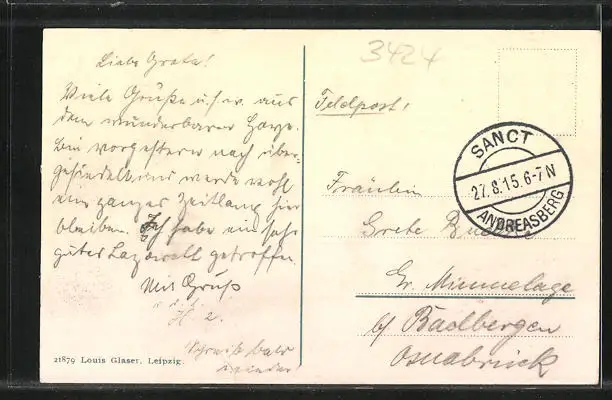 3424
Liebe Grete!
Viele Grüße u.s.w. aus
dem wunderbaren Harze.
Bin vorgestern nach über-
gesiedelt und werde wohl
ein ganze Zeitlang hier
bleiben. Ich habe ein sehr
gutes Lazarett getroffen.
Mit Gruß
H
Schreibe bald
wieder
21879 Louis Glaser, Leipzig.
Feldpost!
SANCT
27.8.15.6-7N
ANDREASBERG
Fräulein
Grete
Gr. Mimmelage
b/ Badbergen
Osnabrück